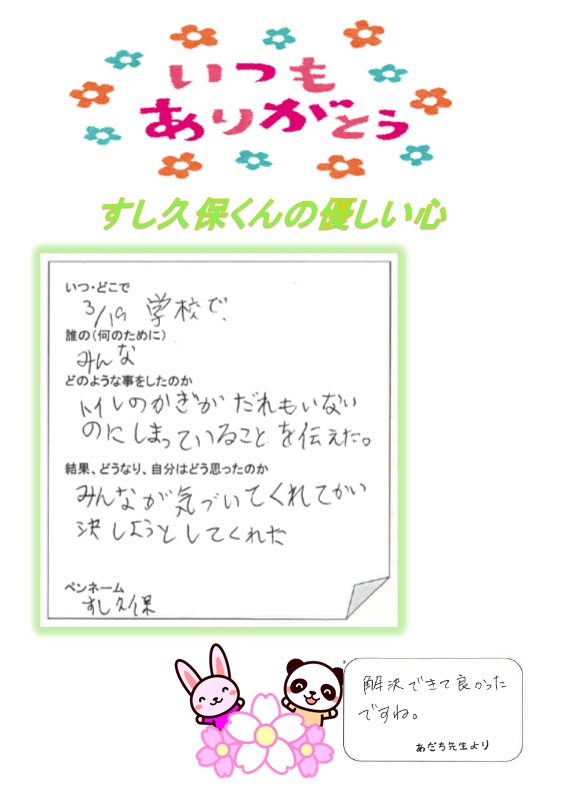 いつも
ありがとう
すし久保くんの優しい心
いつ・どこで
3/19 学校で、
誰の(何のために)
みんな
どのような事をしたのか
トイレのかぎが だれもいない
のにしまっていることを伝えた。
結果、どうなり、自分はどう思ったのか
みんなが気づいてくれてかい
決しようとしてくれた
ペンネーム
すし久保
解決できて良かった
ですね。
あだち先生より